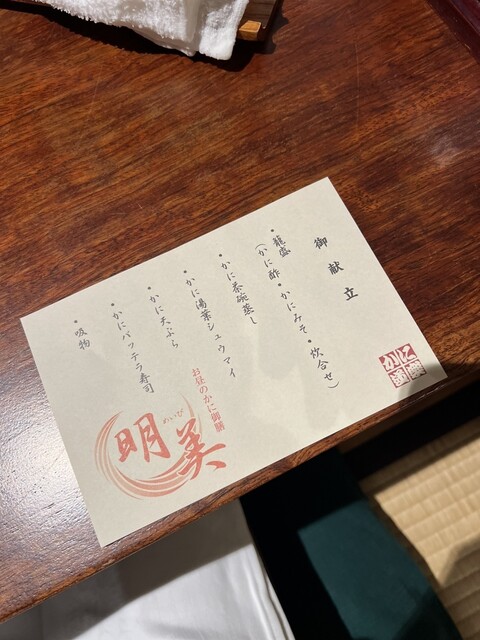 御献立
・籠盛
(かに酢・かにみそ・炊合せ)
・かに茶碗蒸し
・かに湯葉シュウマイ
・かに天ぷら
・かにバッテラ寿司
・吸物
お昼のかに御膳
めいび
明美
かに